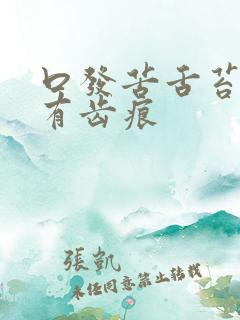 口發苦舌苔
有齿痕
張凱
未经同意禁止转载